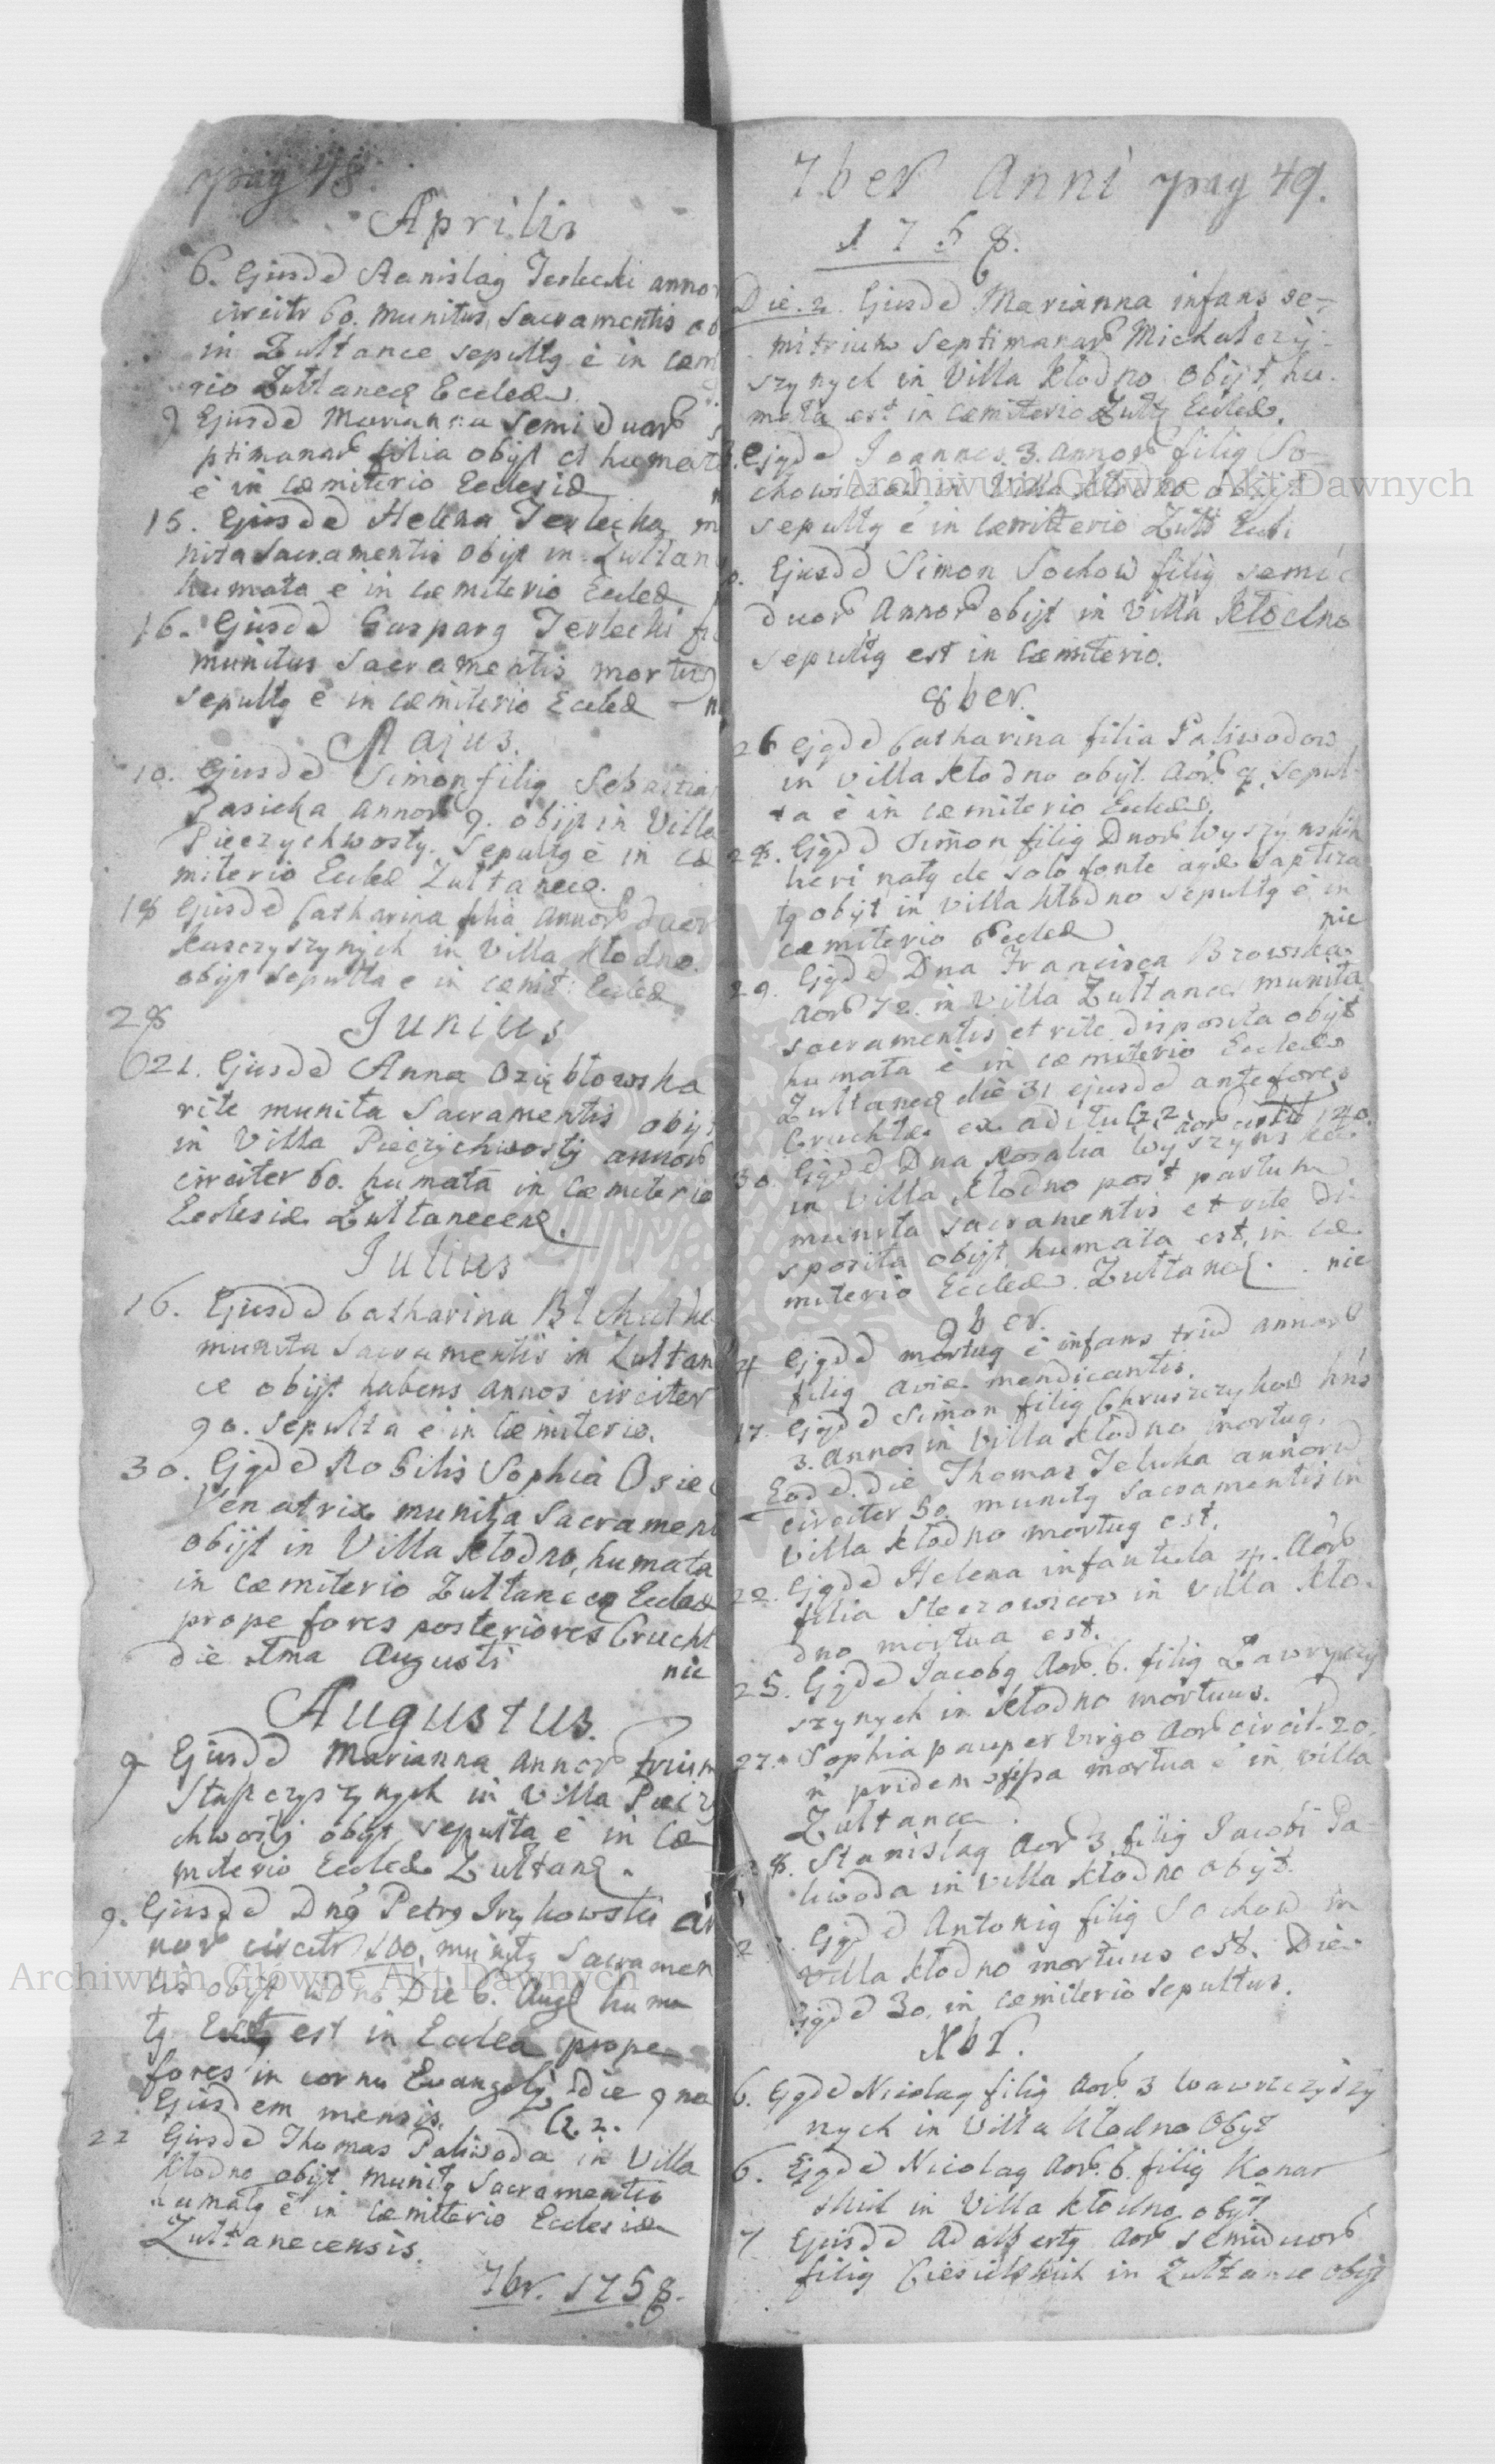 pag 48.
Aprilis
6. Ejusdd Stanislaq Terlecki anno
circitr 60. munitus Sacramentis
in Zultance sepultq ē in cœm
rio Zultanecæ Eccleæ.
9 Ejusdd Marianna Semi duor
ptimanar filia obijt et humat
ē in Cœmiterio Ecclesiæ
15. Ejusdd Hellna Terlecka m
nita Sacramentis obijt in Zultan
humata ē in Cœmiterio Eccleæ
16. Ejusdd Gasparq Terlecki
munitus Sacramentis mortuq
sepultq ē in cœmiterio Eccleæ
Majus.
10. Ejusdd Simon filiq Sebastia
Pasieka annor 9. obijt in Villa
Pieczychwosty. Sepultq ē in Cœ
miterio Eccleæ Zultanecæ.
18 Ejusdd Catharina filia Annor duor
Kusczyszynych in Villa Kłodno.
obijt sepulta e in cœmit: Eccleæ
28
Junius
21. Ejusdd Anna Oziębłowska
rite munita Sacramentis obij
in Villa Pieczychwosty annor
circiter 60. humata in Cœmiterio
Ecclesiæ Zultaneceñ.
Julius
16. Ejusdd Catharina
munita Sacramentis in Zultan
ce obijt habens annos circiter
90. Sepulta ē in Cœmiterio.
30. Ejqdd Nobilis Sophia Osie
Venatrix munita Sacramen
obijt in Villa Kłodno, humata
in cœmiterio Zultanecq Eccleæ
prope fores posteriores Crucht
die 1ma Augusti
nic
Augustus.
9 Ejusdd Marianna Annor trium
Stapczyszynych in Villa Piecz
chwosty obijt, sepulta ē in Cœ
miterio Eccleæ Zultanę.
9. Ejusdd Dnq Petrq Irzykowski an
nor circitr 100. munitq Sacramen
tis obijt Die 6. Aug huma
tq est in Eccleâ prope
fores in cornu Evangelij Die 9na
Ejusdem mensis. Cz 2.
22 Ejusdd Thomas Paliwoda in Villa
Kłodno obijt munitq Sacramentis
humatq ē in Cœmiterio Ecclesiæ
Zultanecensis.
7br. 1758.
7ber Anni pag 49.
1758.
Die. 2. Ejusdd Marianna infans se-
mitrium Septimanar Michalczy-
szynych in Villa Kłodno obijt, hu-
mata est in Cœmiterio Zultz Eccleæ.
Ejqdd Joannes 3. Annor filiq So-
chowiczow in Villa Kłodno obijt
sepultq ē in Cœmitterio Zult Eccl:
Ejusdd Simon Sochow filiq semi
duor Annor obijt in Villa Kłodno
sepultq est in Cœmiterio.
8ber.
26 Ejqdd Catharina filia Paliwodow
in Villa Kłodno obijt. Aor. 7. sepul-
ta ē in cœmiterio Eccleæ.
28. Ejqdd Simon filiq Dnor Wyszynskih
heri natq de solo fonte aqæ baptiza
tq obijt in villa Kłodno sepultq ē in
cœmiterio Eccleæ
nic
29. Ejqdd Dna Francisca Brzowska
Aor 72. in Villa Zultance munita
sacramentis et rite disposita obijt
humata ē in cœmiterio Eccleæ
Zultaneę die 31 ejusdd ante fores
Cruchtæ ex aditu Cz 2 aor circit 140.
30. Ejqdd Dna Rosalia Wyszynska
in Villa Kłodno post partum
munita sacramentis et rite di-
sposita obijt humata est, in cœ
miterio Eccleæ Zultanę. nic
9ber.
4 Ejqdd mortuq ē infans triu annor
filiq aviæ mendicantis.
17. Ejqdd Simon filiq Chruszczykow hñs
3. Annos in Villa Kłodno mortuq.
Eodd. die Thomas Jeluka annoru
circiter 50. munitq Sacramentis in
Villa Kłodno mortuq est.
22. Ejqdd Helena infantula Aor
filia Steczowicow in Villa Kło-
dno mortua est.
25. Ejqdd Jacobq Aor. 6. filiq Lawryczy
szynych in Kłodno mortuus.
27. Sophia pauper virgo Aor circit. 20.
ñ pridem mortua ē in villa
Zultance.
8. Stanislaq Aor 3. filiq Jacobi Pa-
liwoda in Villa Kłodno obijt.
Ejqdd Antoniq filiq Sochow in
Villa Kłodno mortuus est. Die
Ejqdd 30. in cœmiterio sepultus.
Xbr.
6. Ejqdd Nicolaq filiq Aor. 3 Wawrzczyszy
nych in Villa Kłodno Obijt
6. Ejqdd Nicolaq Aor. 6. filiq Konar
skich in Villa Kłodno obijt
7 Ejusdd Adalbertq Aor semiduor
filiq Ciesielskich in Zultance obijt
Archiwum Główne Akt Dawnych
Archiwum Główne Akt Dawnych